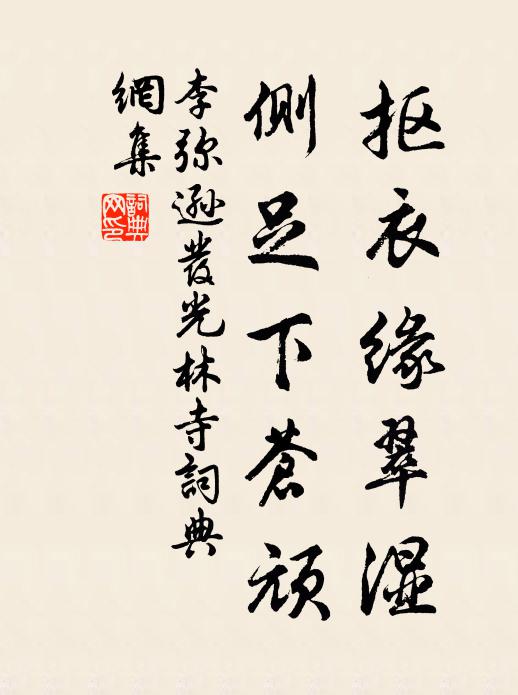 抠衣缘翠湿
侧足下苍顽
李弥逊发光林寺词典
網集
词典
网印